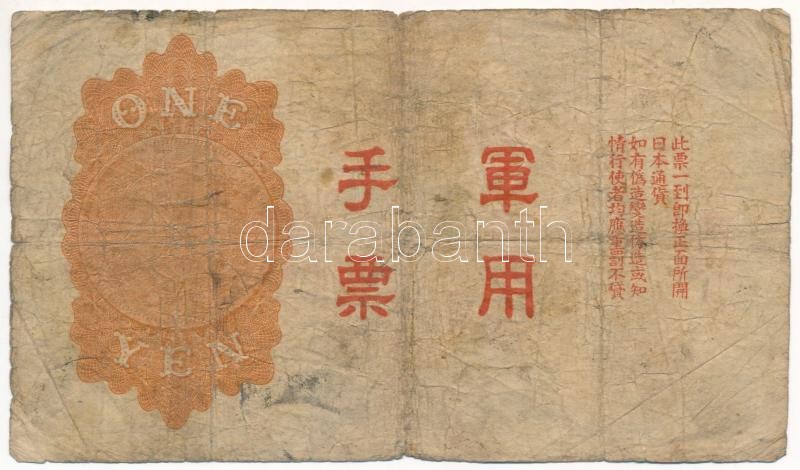 ONE
YEN
軍用
手票
此票一到即換正面所開
日本通貨
如有偽造變造仿造或知
情行使者均應重罰不貸
darabanth